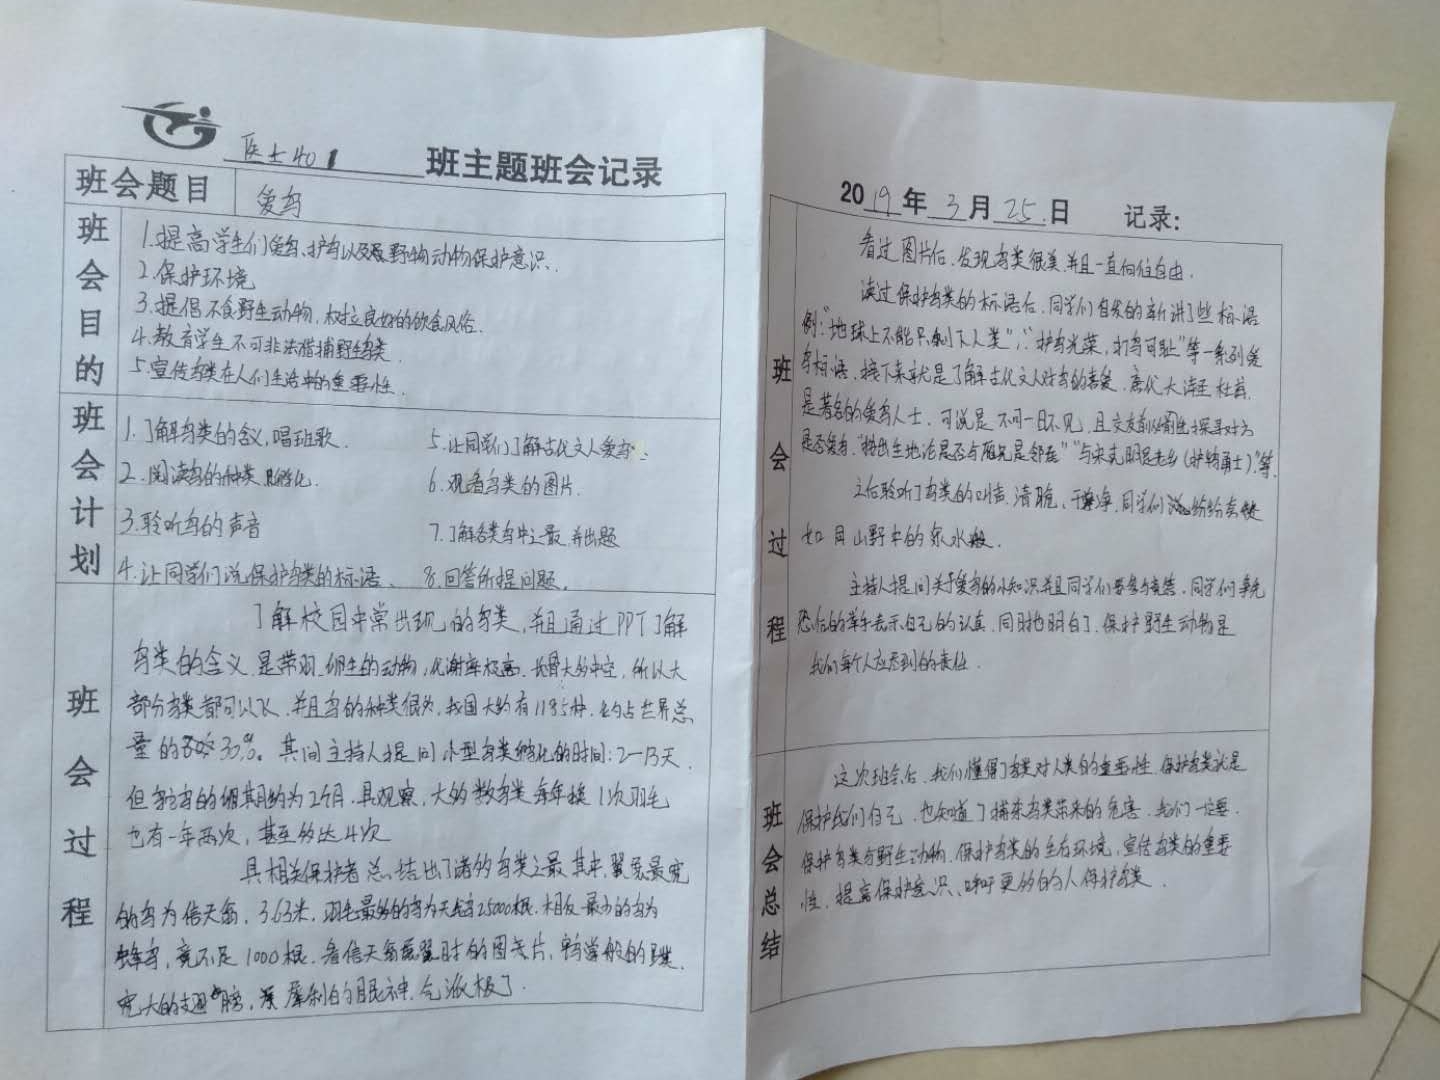 医士401 班主题班会记录
班会题目
爱鸟
班会目的
1.提高学生们爱鸟、护鸟以及野物动物保护意识.
2.保护环境
3.提倡不食野生动物,树立良好的饮食风俗.
4.教育学生不可非法猎捕野生鸟类
5.宣传鸟类在人们生活中的重要性.
班会计划
1.了解鸟类的含义,唱班歌.
2.阅读鸟的种类及孵化.
3.聆听鸟的声音
4.让同学们说保护鸟类的标语.
5.让同学们了解古代文人爱鸟
6.观看鸟类的图片.
7.了解各类鸟中之最,并出题
8.回答所提问题.
班会过程
了解校园中常出现的鸟类,并且通过PPT了解
鸟类的含义,是带羽、卵生的动物,代谢率极高,长骨大多中空,所以大
部分鸟类都可以飞.并且鸟的种类很多,我国大约有1185种,约占世界总
量的 30%。其间主持人提问小型鸟类孵化的时间:2—13天.
但 鸟的 期约为2个月.具观察,大多数鸟类每年换1次羽毛
也有一年两次,甚至多达4次
具相关保护者总结出了诸多鸟类之最,其中,翼展最宽
的鸟为信天翁,3.63米,羽毛最多的鸟为天鹅25000根.相反最少的鸟为
蜂鸟,竟不足1000根.看信天翁展翼时的图片,
宽大的翅膀, 犀利的眼神,气派极了.
2019年3月25日 记录:
班会过程
看过图片后,发现鸟类很美,并且一直向往自由.
读过保护鸟类的标语后,同学们自发的 讲了些标语
例:“地球上不能只剩下人类”,“护鸟光荣,打鸟可耻”等一系列爱
鸟标语.接下来就是了解古代文人对鸟的喜爱.唐代大诗圣杜甫,
是著名的爱鸟人士.可说是不可一日不见,且交友前必 探寻对方
是否爱鸟.“ 出生地论是否与雁兄是邻在”“与宋克明是老乡(护鸭勇士)”等.
之后聆听了鸟类的叫声,清脆、干净,同学们 纷纷
如同山野中的泉水般.
主持人提问关于爱鸟的小知识并且同学们 .同学们争先
恐后的举手表示自己的认真.同时也明白了,保护野生动物是
我们每个人应尽到的责任.
班会总结
这次班会后,我们懂得了鸟类对人类的重要性.保护鸟类就是
保护我们自己,也知道了捕杀鸟类带来的危害.我们一定要
保护鸟类与野生动物.保护鸟类的生存环境,宣传鸟类的重要
性,提高保护意识、呼吁更多的人保护鸟类.